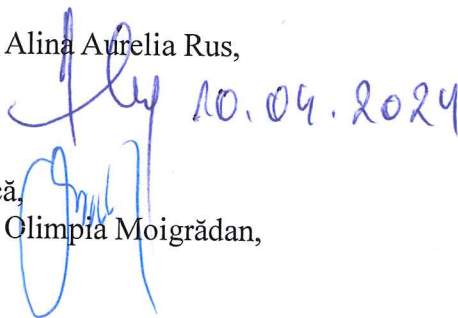 Alina Aurelia Rus,
10.04.2024
că,
Olimpia Moigrădan,